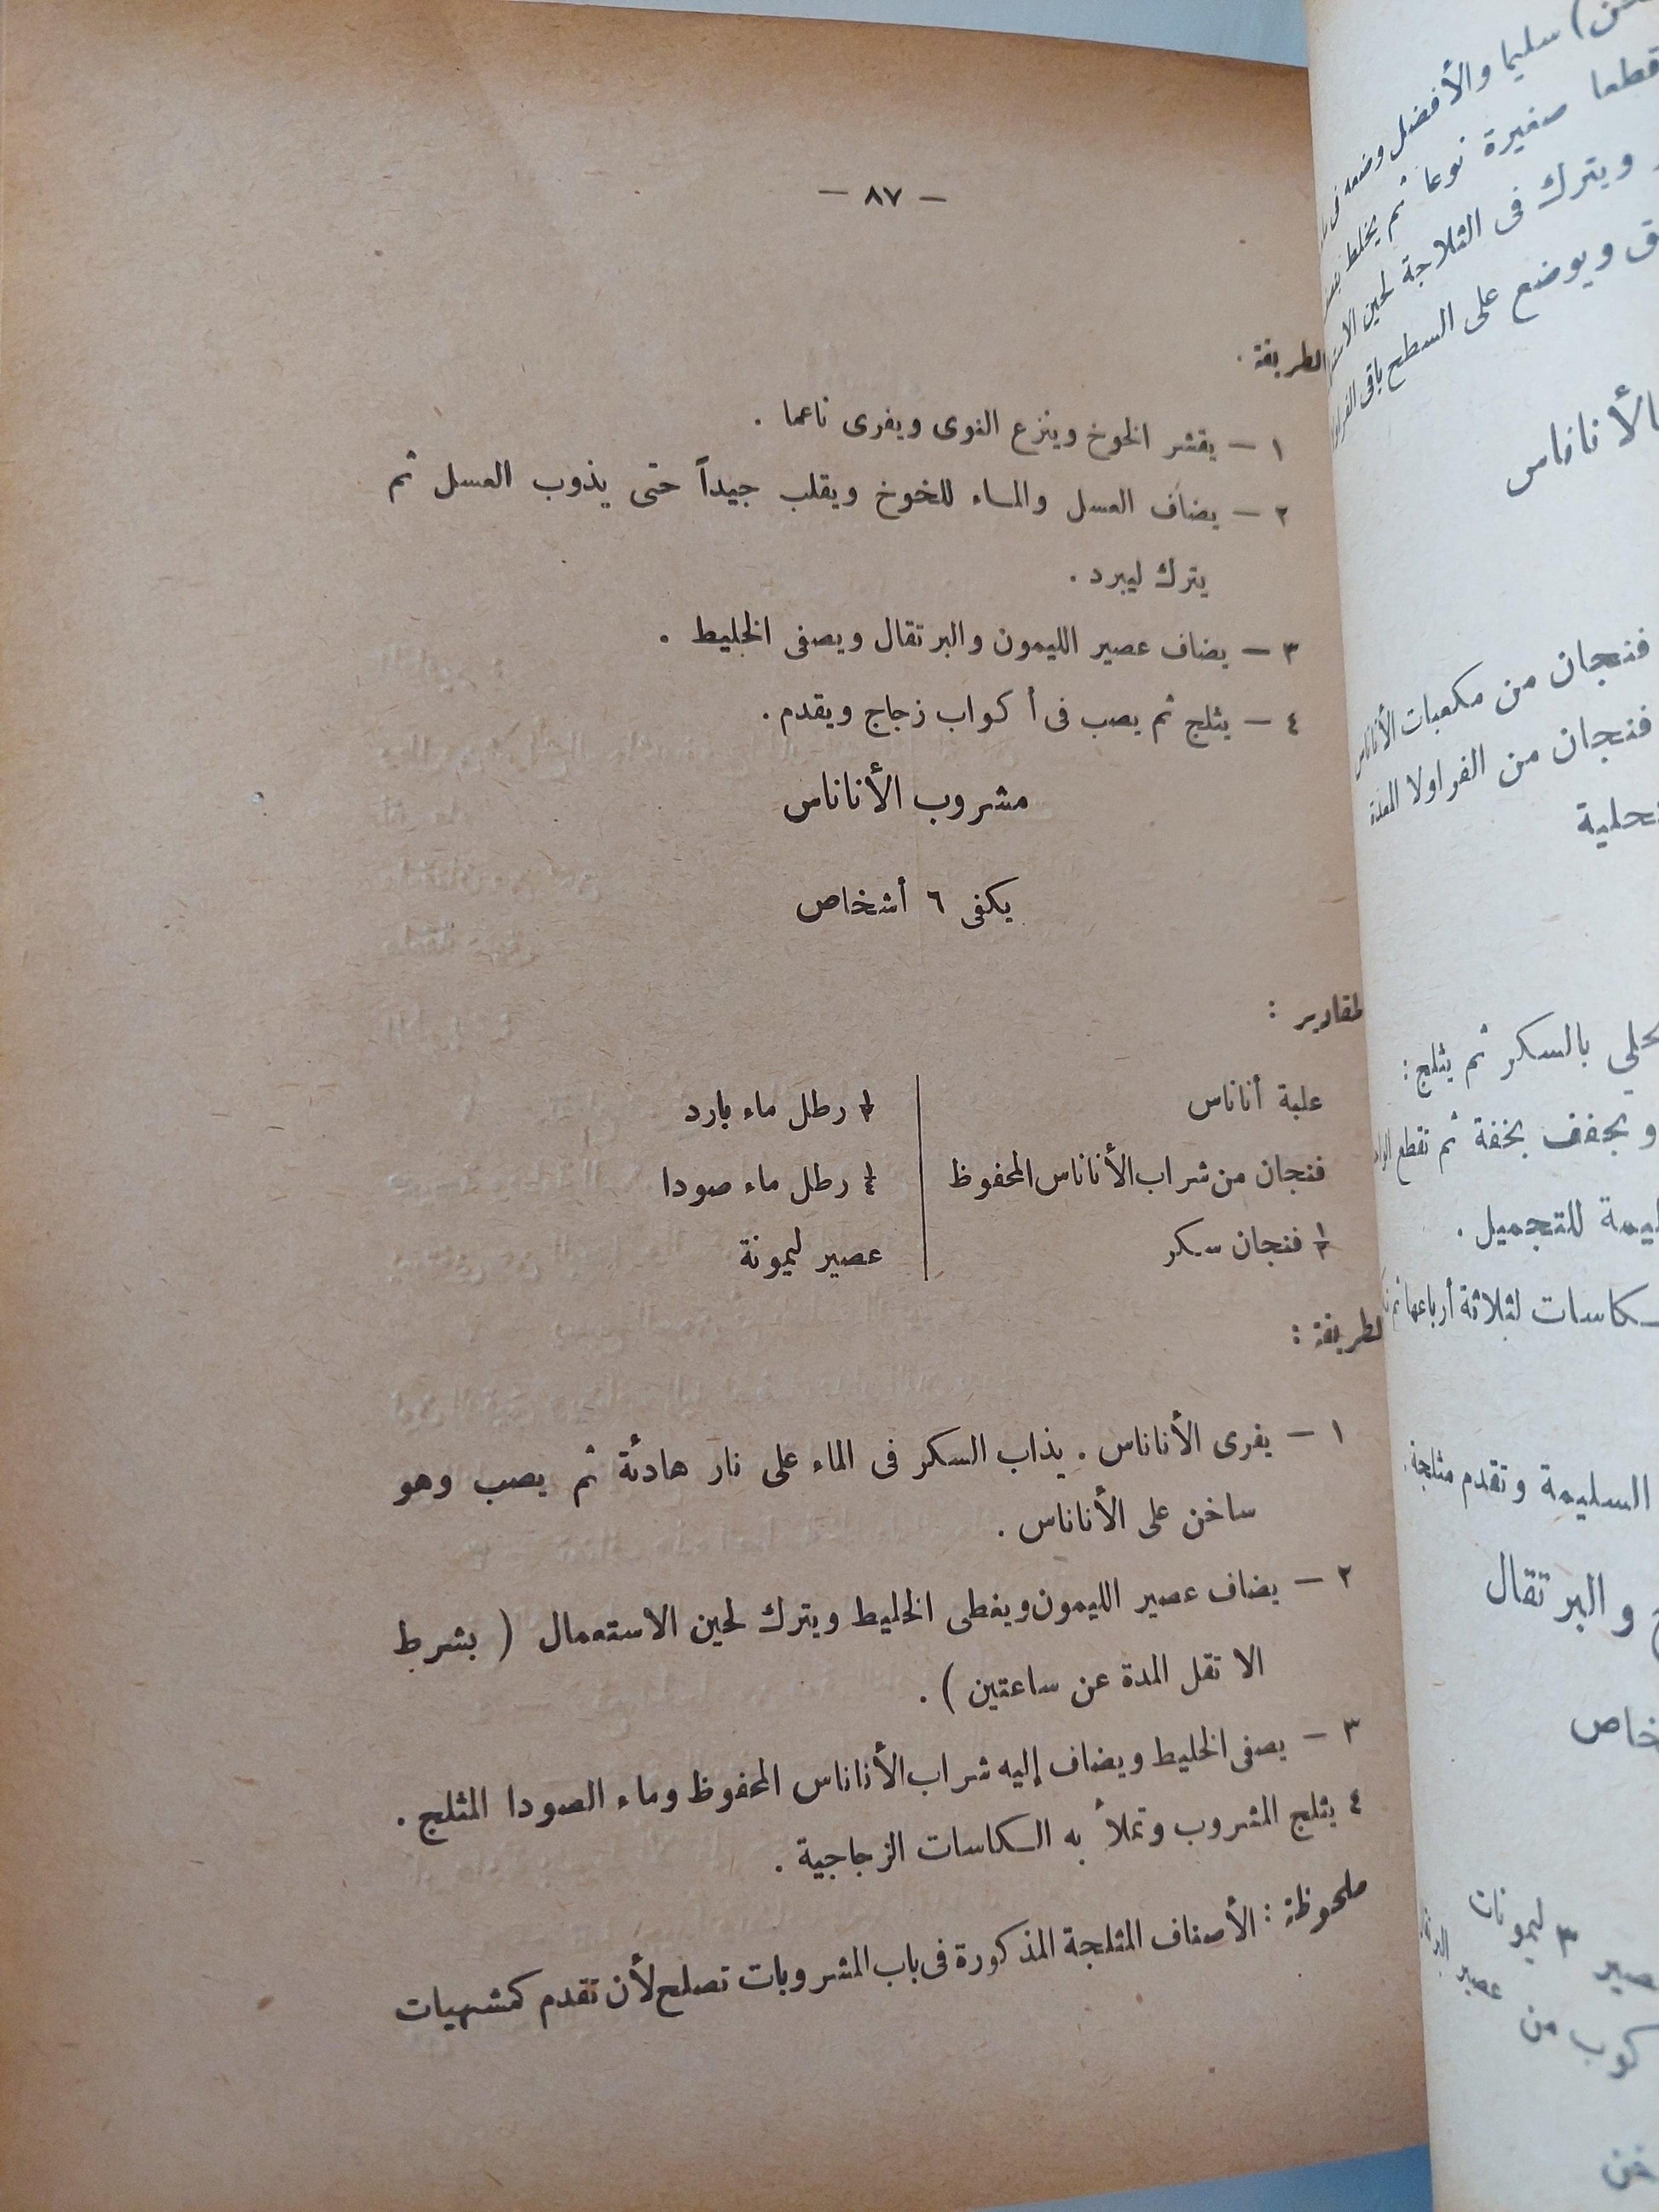 — ٨٧ —
الطريقة .
١ — يقشر الخوخ وينزع النوى ويفرى ناعما .
٢ — يضاف العسل والماء للخوخ ويقلب جيداً حتى يذوب العسل ثم
يترك ليبرد .
٣ — يضاف عصير الليمون والبرتقال ويصفى الخليط .
٤ — يثلج ثم يصب فى أكواب زجاج ويقدم .
مشروب الأناناس
يكفى ٦ أشخاص
لمقادير :
علبة أناناس
فنجان من شراب الأناناس المحفوظ
½ فنجان سكر
½ رطل ماء بارد
¼ رطل ماء صودا
عصير ليمونة
لطريقة :
١ — يفرى الأناناس . يذاب السكر فى الماء على نار هادئة ثم يصب وهو
ساخن على الأناناس .
٢ — يضاف عصير الليمون ويغطى الخليط ويترك لحين الاستعمال ( بشرط
الا تقل المدة عن ساعتين ) .
٣ — يصفى الخليط ويضاف إليه شراب الأناناس المحفوظ وماء الصودا المثلج .
٤ يثلج المشروب وتملأ به الكاسات الزجاجية .
ملحوظة : الأصناف المثلجة المذكورة فى باب المشروبات تصلح لأن تقدم كمشهيات
سليما والأفضل وضعه
قطعا صغيرة نوعا ثم يخلط
ويترك فى الثلاجة لحين
ويوضع على السطح باقى
الأناناس
فنجان من مكعبات الأناناس
فنجان من الفراولا المعدة
بالسكر ثم يثلج :
ويجفف بخفة ثم تقطع
للتجميل .
لثلاثة أرباعها
السليمة وتقدم مثلجة .
والبرتقال
٣ ليمونات
كوب من عصير